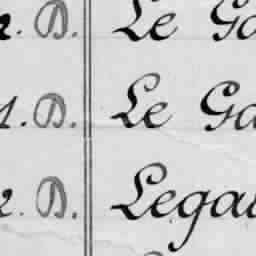 D. Le Ga
1. D. Le Ga
2. D. Legal